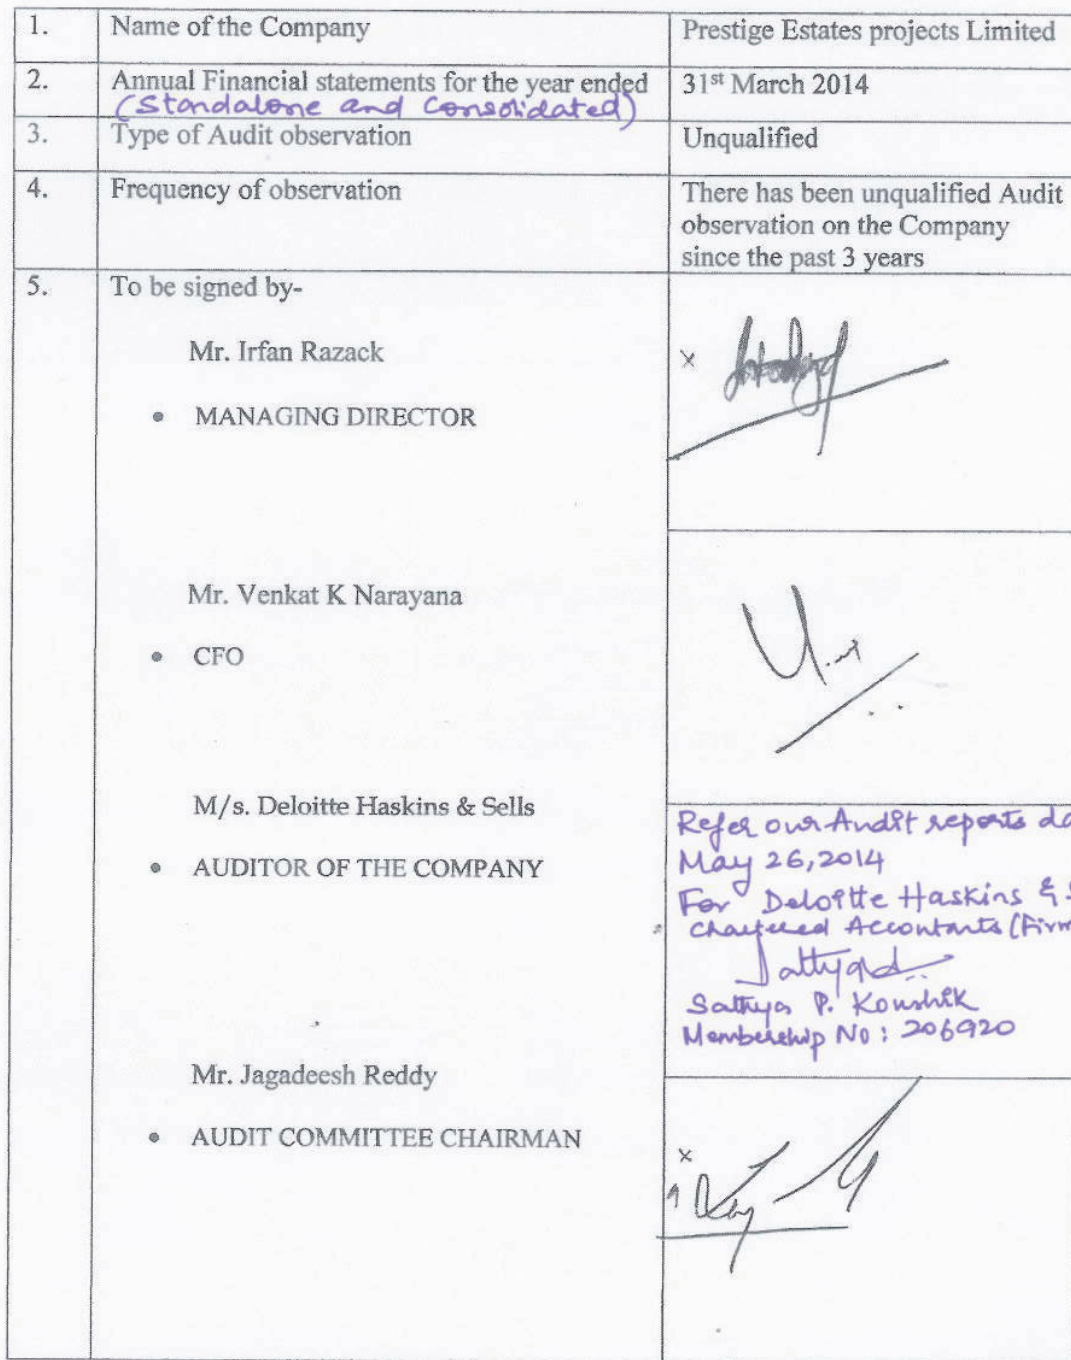 1. Name of the Company Prestige Estates projects Limited
2. Annual Financial statements for the year ended 31st March 2014
(Standalone and Consolidated)
3. Type of Audit observation Unqualified
4. Frequency of observation There has been unqualified Audit
observation on the Company
since the past 3 years
5. To be signed by-
Mr. Irfan Razack
x
• MANAGING DIRECTOR
Mr. Venkat K Narayana
• CFO
M/s. Deloitte Haskins & Sells
Refer our Audit reports
May 26, 2014
• AUDITOR OF THE COMPANY
For Deloitte Haskins &
Chartered Accontants (Firm
Sathya P. Koushik
Membership No: 206920
Mr. Jagadeesh Reddy
• AUDIT COMMITTEE CHAIRMAN
x